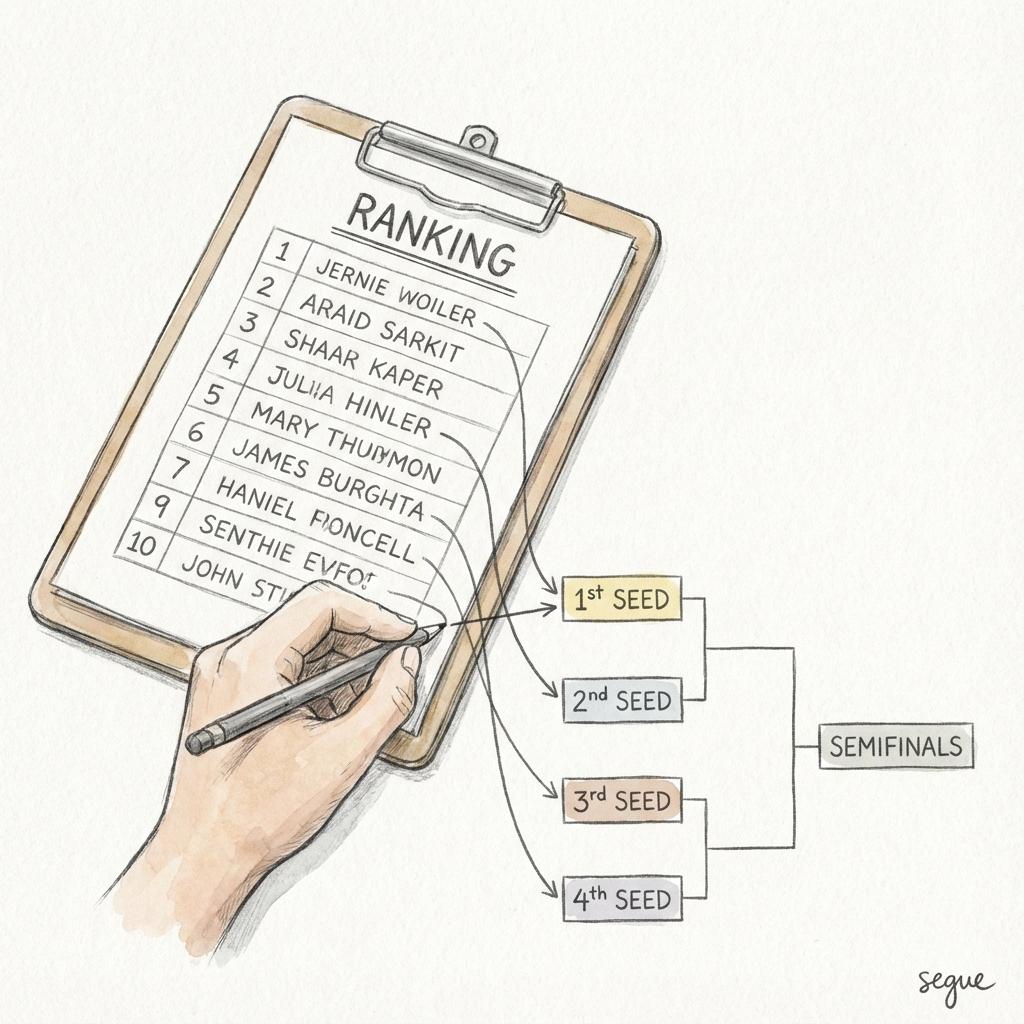 RANKING
1 JERNIE WOILER
2 ARAID SARKIT
3 SHAAR KAPER
4 HINLER
5 MARY
6 JAMES BURGHTA
7 HANIEL
9 SENTHIE
10 JOHN
1st SEED
2nd SEED
3rd SEED
4th SEED
SEMIFINALS
segue